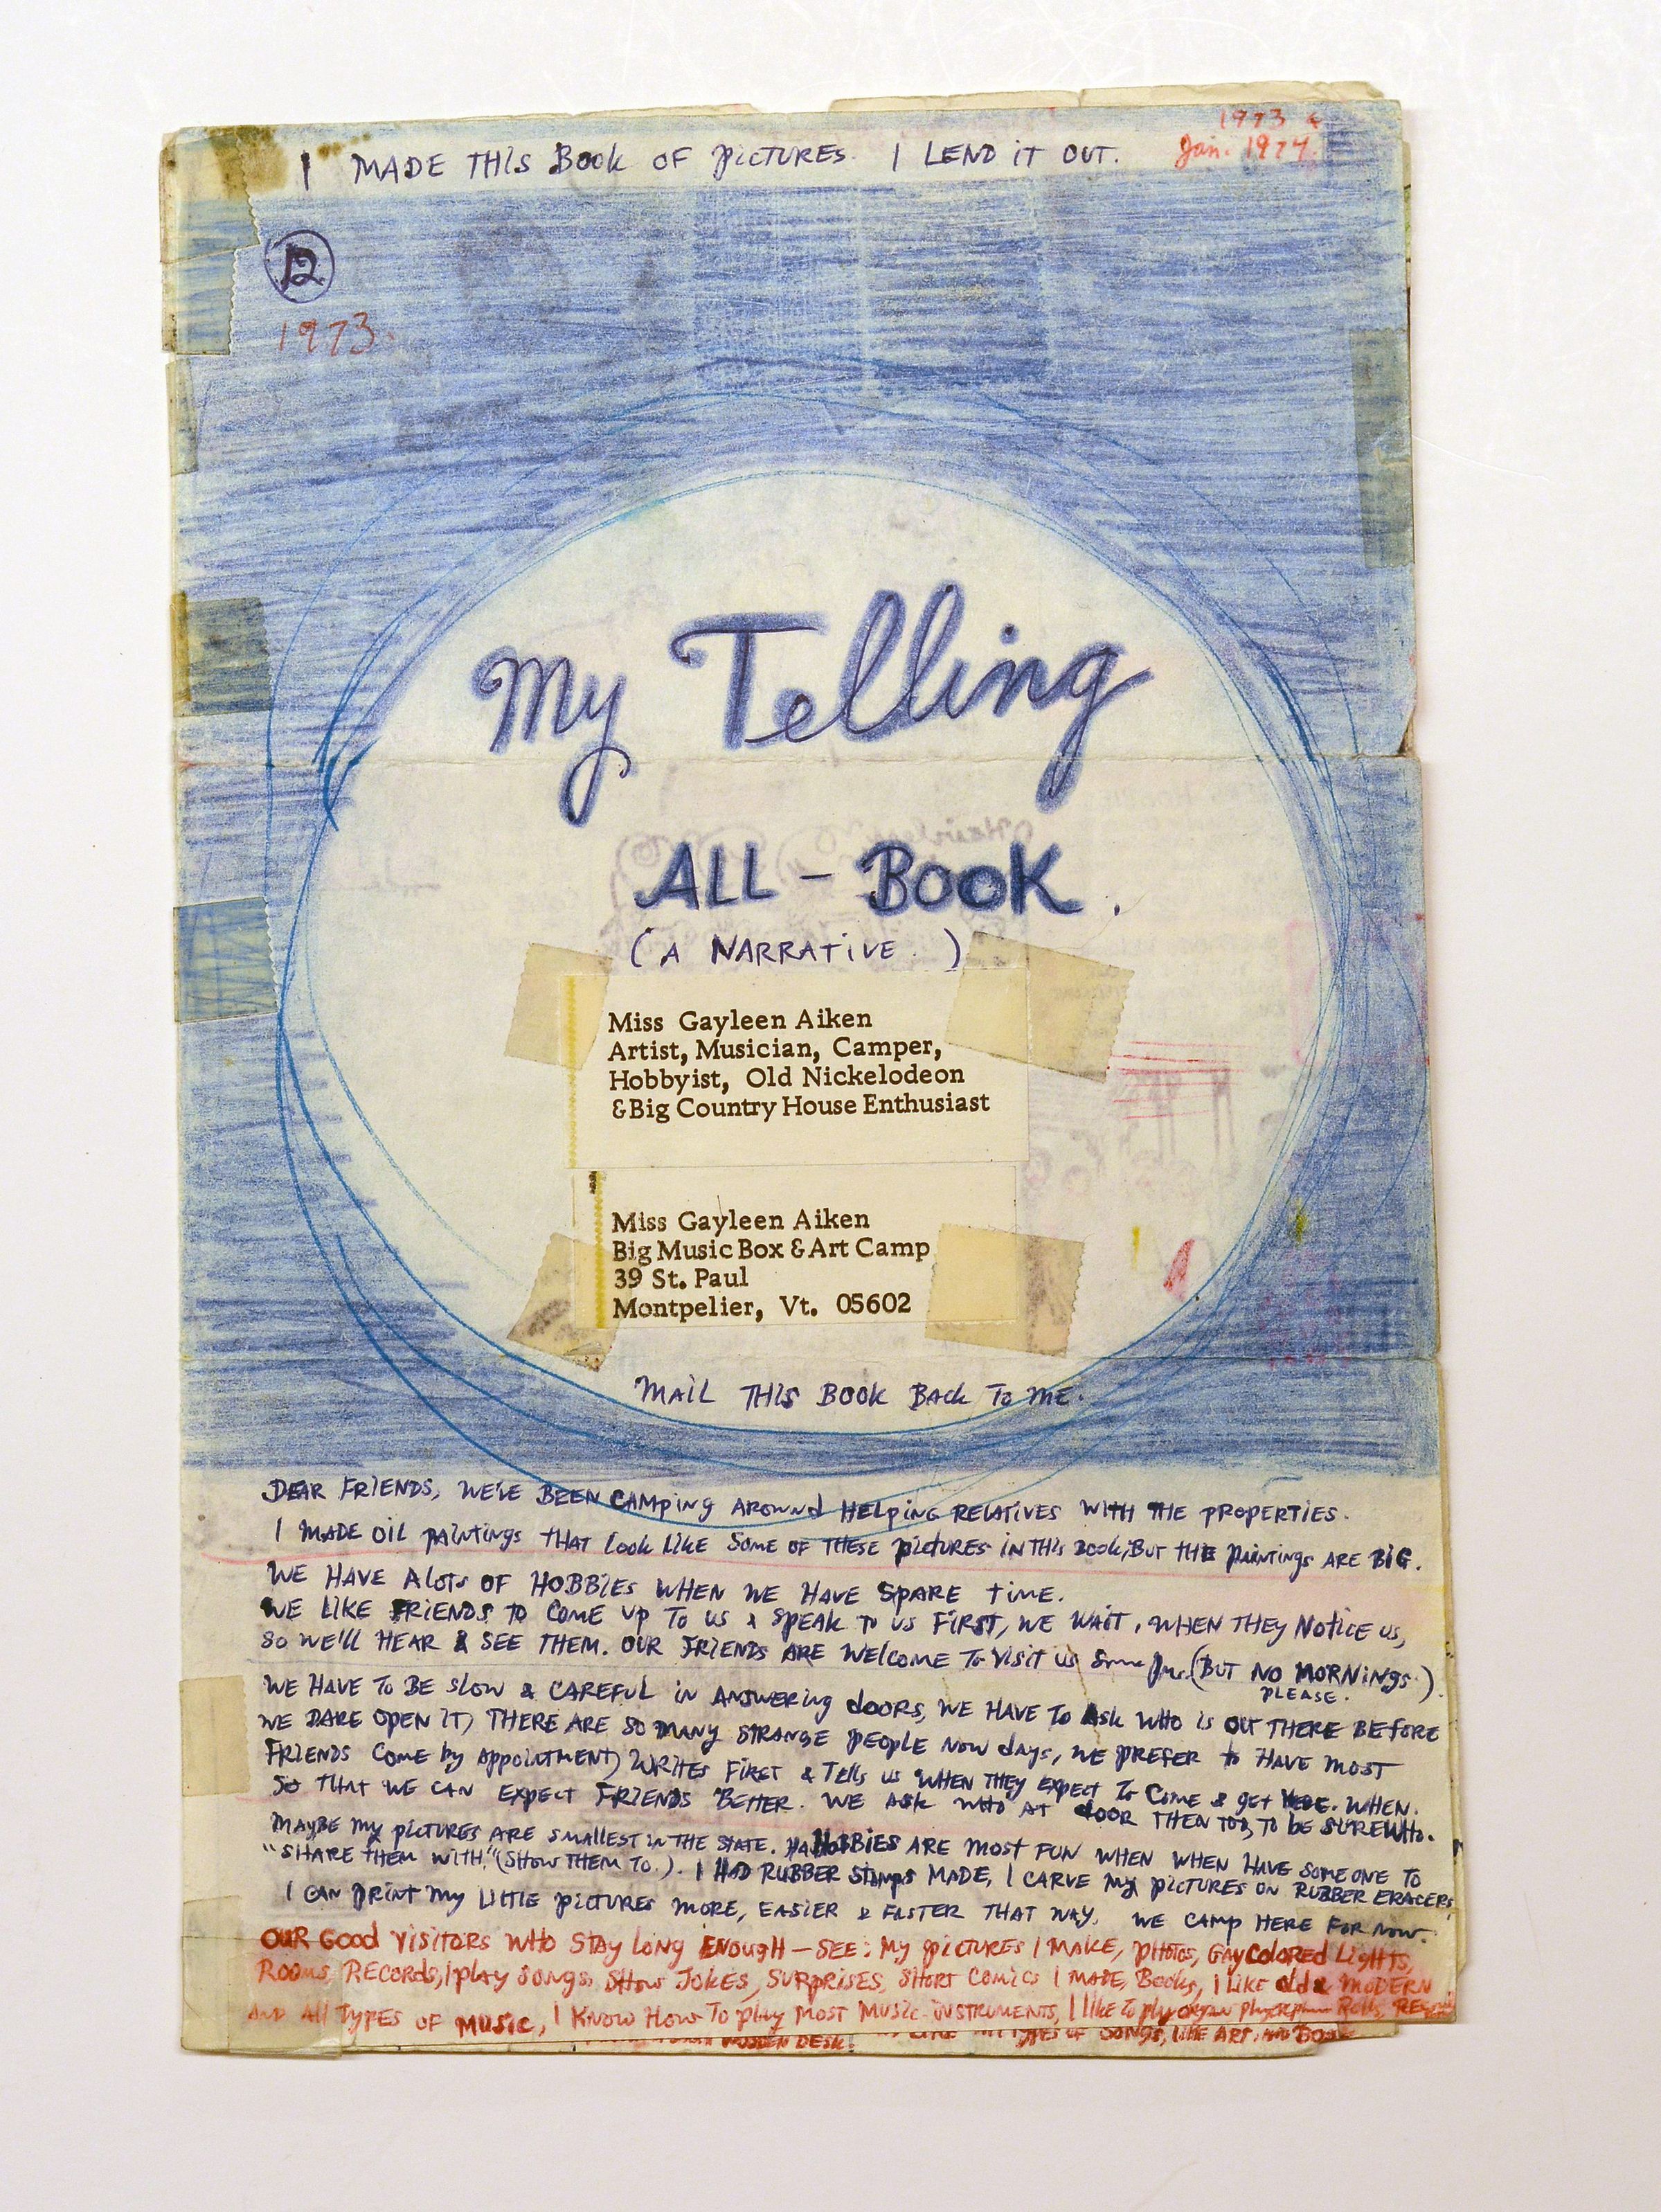 I MADE THIS BOOK OF PICTURES. I LEND IT OUT.
1973 &
Jan. 1974.
12
1973.
My Telling
ALL - BOOK.
(A NARRATIVE.)
Miss Gayleen Aiken
Artist, Musician, Camper,
Hobbyist, Old Nickelodeon
&Big Country House Enthusiast
Miss Gayleen Aiken
Big Music Box & Art Camp
39 St. Paul
Montpelier, Vt. 05602
MAIL THIS BOOK BACK TO ME.
DEAR FRIENDS, WE'VE BEEN CAMPING AROUND HELPING RELATIVES WITH THE PROPERTIES.
I MADE OIL PAINTINGS THAT LOOK LIKE SOME OF THESE PICTURES IN THIS BOOK, BUT THE PAINTINGS ARE BIG.
WE HAVE A LOTS OF HOBBIES WHEN WE HAVE SPARE TIME.
WE LIKE FRIENDS TO COME UP TO US & SPEAK TO US FIRST, WE WAIT, WHEN THEY NOTICE US,
SO WE'LL HEAR & SEE THEM. OUR FRIENDS ARE WELCOME TO VISIT US Some (BUT NO MORNINGS.)
PLEASE.
WE HAVE TO BE SLOW & CAREFUL IN ANSWERING DOORS, WE HAVE TO ASK WHO IS OUT THERE BEFORE
WE DARE OPEN IT, THERE ARE SO MANY STRANGE PEOPLE NOW DAYS, WE PREFER TO HAVE MOST
FRIENDS COME BY APPOINTMENT) WRITES FIRST & TELLS US WHEN THEY EXPECT TO COME & GET HERE. WHEN.
SO THAT WE CAN EXPECT FRIENDS BETTER. WE ASK WHO AT DOOR THEN TOO, TO BE SURE WHO.
MAYBE MY PICTURES ARE SMALLEST IN THE STATE. HOBBIES ARE MOST FUN WHEN WHEN HAVE SOMEONE TO
"SHARE THEM WITH," (SHOW THEM TO.). I HAD RUBBER STAMPS MADE, I CARVE MY PICTURES ON RUBBER ERACERS,
I CAN PRINT MY LITTLE PICTURES MORE, EASIER & FASTER THAT WAY. WE CAMP HERE FOR NOW.
OUR GOOD VISITORS WHO STAY LONG ENOUGH — SEE: MY PICTURES I MAKE, PHOTOS, GAY COLORED LIGHTS,
ROOMS, RECORDS, I PLAY SONGS, SHOW JOKES, SURPRISES, SHORT COMICS I MADE, BOOKS, I LIKE OLD & MODERN
AND ALL TYPES OF MUSIC, I KNOW HOW TO PLAY MOST MUSIC INSTRUMENTS, I LIKE TO PLAY ORGAN ROLLS,
WOODEN DESK. TYPES OF SONGS, LIKE ART, AND